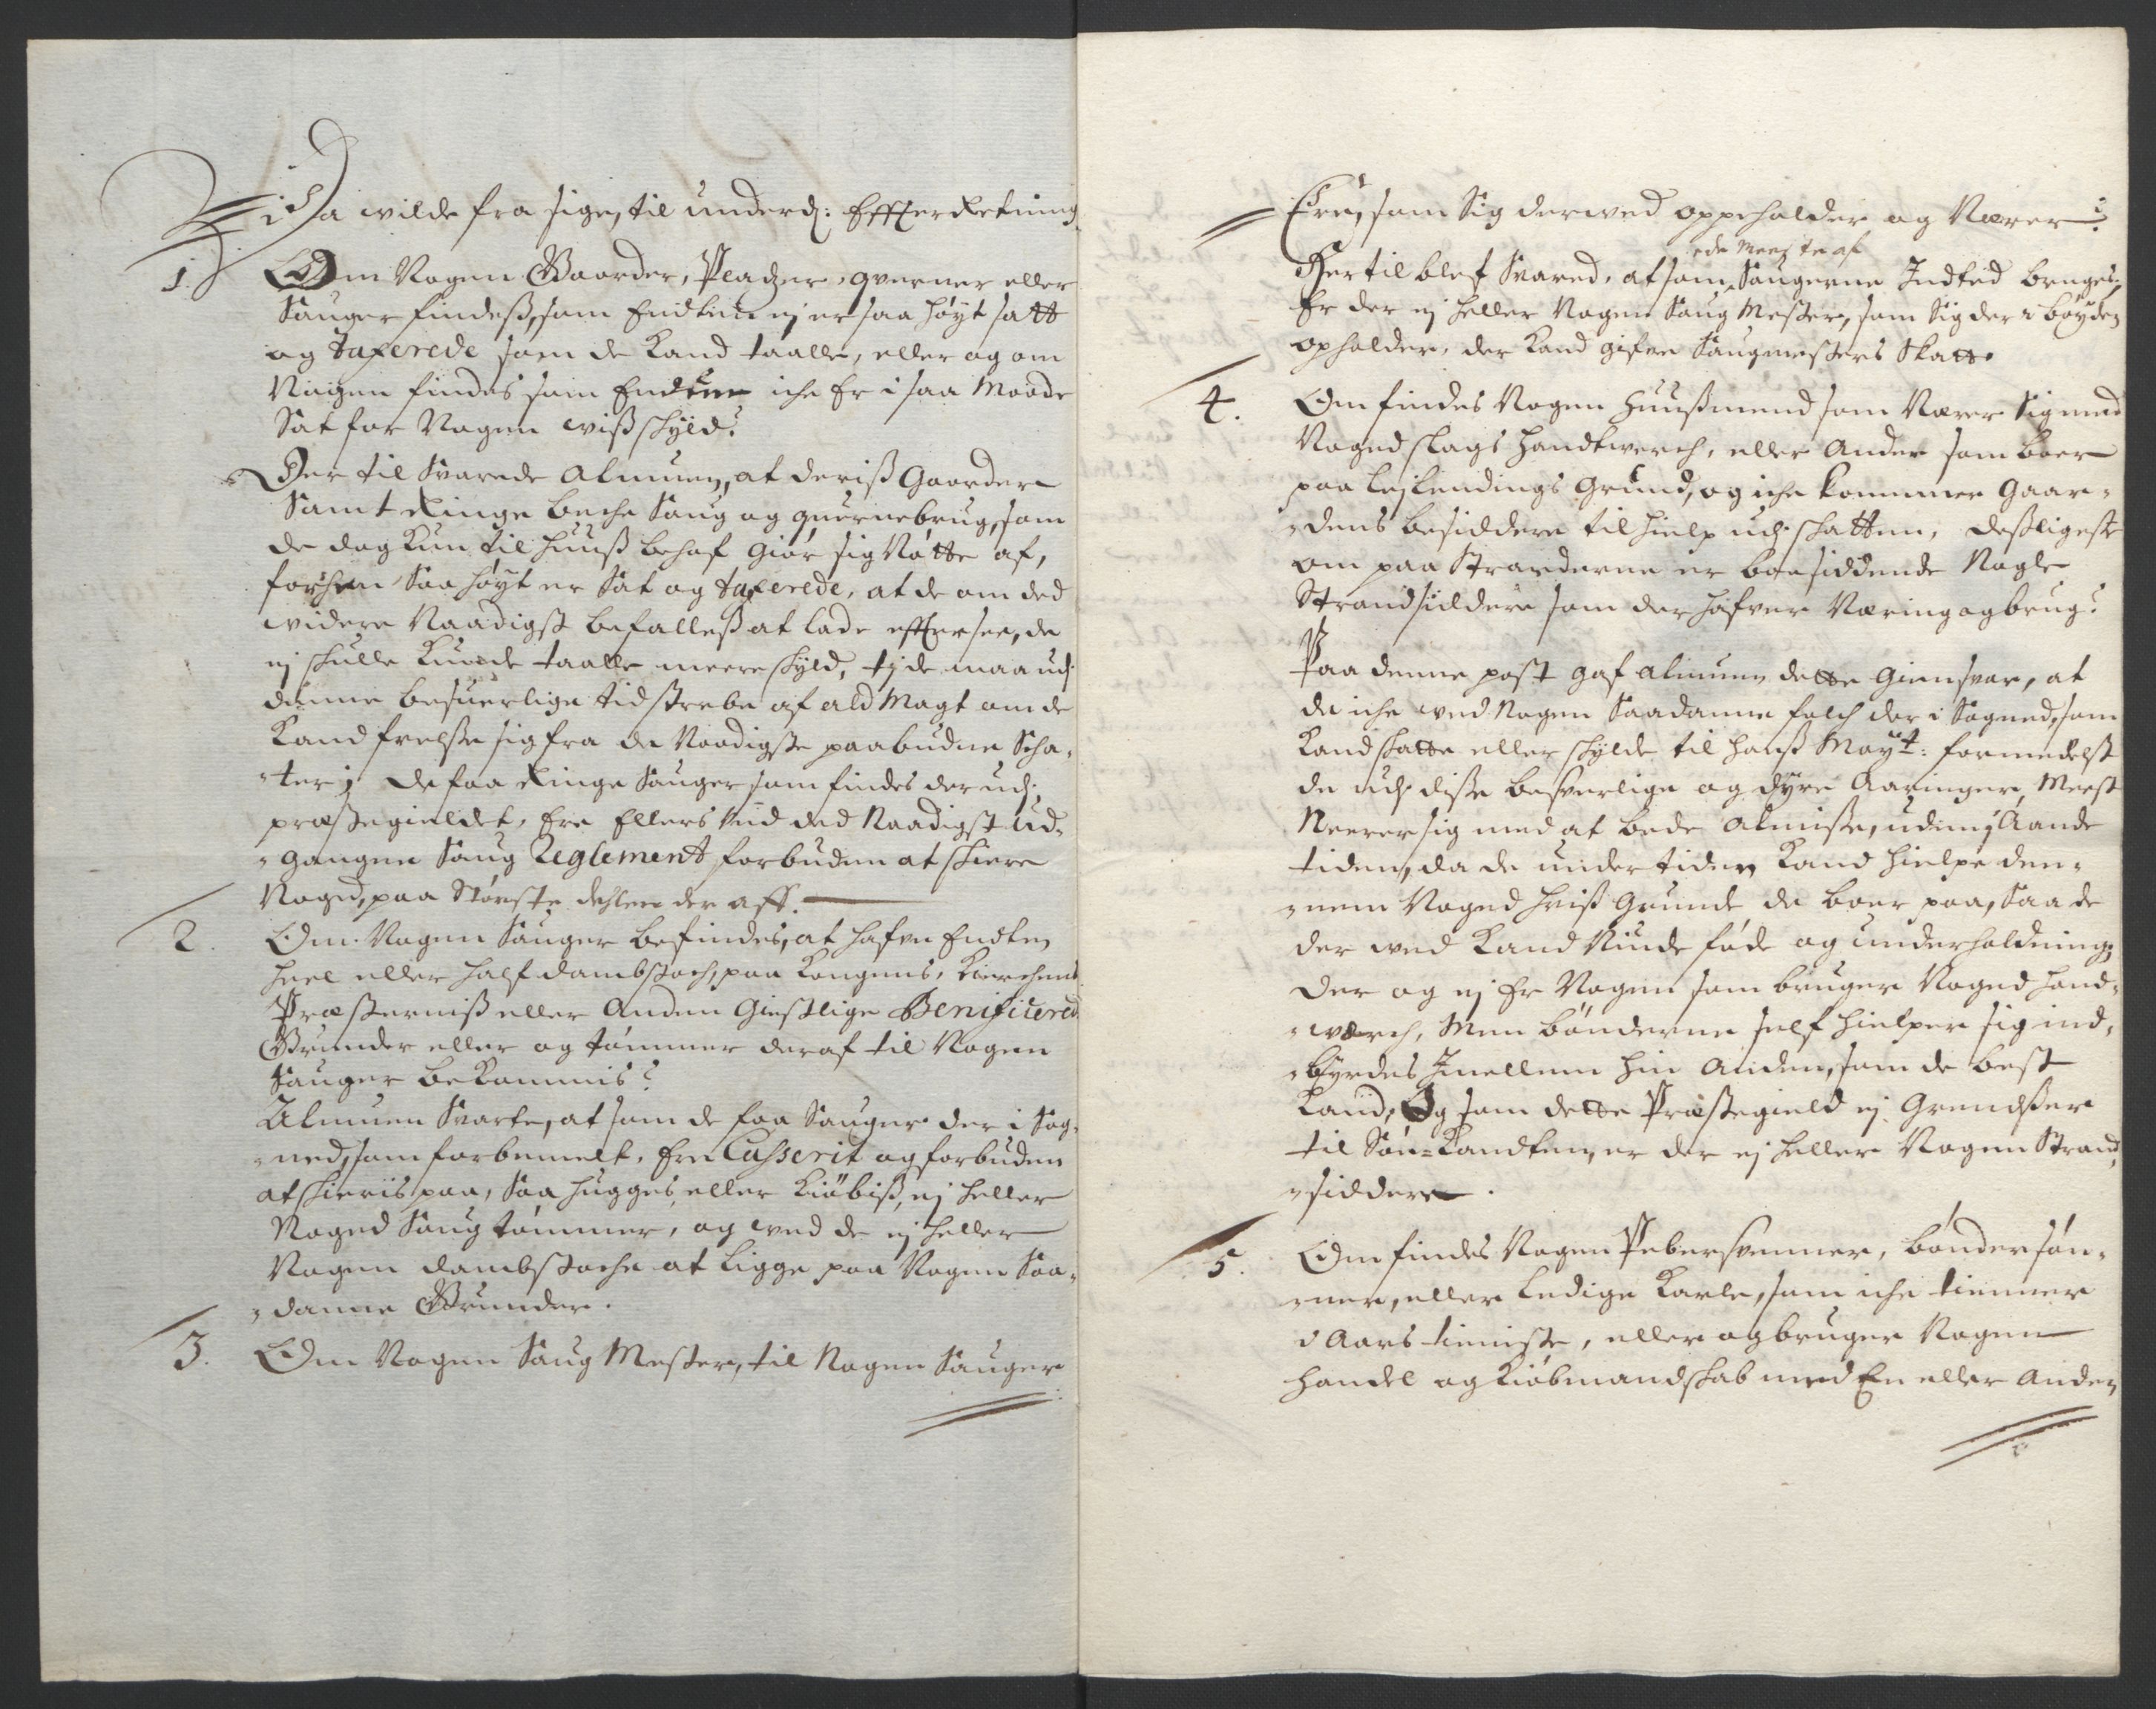 Da wilde fra sige, til underd: Effterretning
1. Om Nogen Gaarder, Pladzer, qverner eller
Sauger findeß, som Endten ej er saa høyt satt
og taxerede som de kand taalle, eller og om
Nogen findes som Endnu iche Er i saa Maade
Sat for Nogen wiß schyld?
Der til Svarede Almuen, at deriß Gaarder
Samt Ringe beche Saug og quernebrug, som
de dog kun til huuß behof giør sig Nøtte af,
forhen saa høyt er Sat og taxerede, at de om ded
widere Naadigst befalleß at lade effter see, de
ej schulle kunde taalle meere schyld, tj de maa udj
denne besuerlige tid strebe af ald Magt om de
kand frelse sig fra de Naadigste paabudne Scha-
-ter; De faa Ringe Sauger som findes der udj
præstegieldet, Ere Ellers ved ded Naadigst ud-
-gangne Saug Reglement forbuden at schiere
Noged, paa Største dehlen der aff.
2. Om Nogen Sauger befindes, at hafve Endten
heel eller half dambstoch, paa kongens, kierchens
Præsterniß eller Anden Giestlige Benificered
Grunder eller og tømmer deraf til Nogen
Sauger bekommis?
Almuen Svarte, at som de faa Sauger der i Sog-
-ned, som forbemelt, Ere Casserit og forbuden
at schieris paa, saa hugges, eller kiøbiß, ej heller
Noged Saug tømmer, og ved de ej heller
Nogen dambstoche at ligge paa Nogen Saa-
-danne Grunder.
3. Om Nogen Saug Mester, til Nogen Sauger
Ere, som Sig derved oppeholder og Nærer?
ede meeste af
Hertil blef Svared, at som Saugerne Indted bruges,
Er der ej heller Nogen Saug Mester, som Sig der i bøyden
opholder, der kand gifve Saugmesters Skatt.
4. Om findes Nogen Huußmend som Nærer Sig med
Noged slags Handtwerch, eller Ander som boer
paa Lejlendings Grund, og iche kommer Gaar-
-dens besiddere til hielp udj schatten, desligeste
om paa Stranderne er boesiddende Nogle
Strandsiddere som der hafver Næring og brug?
Paa denne post gaf Almuen dette Giensvar, at
de iche ved Nogen Saadanne folch der i Sogned, som
kand skatte eller schylde til hanß Mayt: formedelst
de udj disse besverlige og dyre Aaringer, Meest
Neerer sig med at bede Almisse, uden j Aande
tiden, da de under tiden kand hielpe den-
-nem Noged hviß Grunde de boer paa, saa de
der ved kand Niude føde og underholdning,
der og ej Er Nogen som bruger Noged Hand-
-værch, Men bønderne self hielper sig ind-
-byrdes Imellem hin Anden, som de best
kand, Og som dette Præstegield ej Grendser
til Søe-kandten, er der ej heller Nogen Strand-
-siddere.
5. Om findes Nogen Pebersvenner, bønder søn-
-ner, eller Ledige karle, som iche tienner
i Aars tienniste, eller og bruger Nogen
handel og kiøbmandskab med En eller Anden